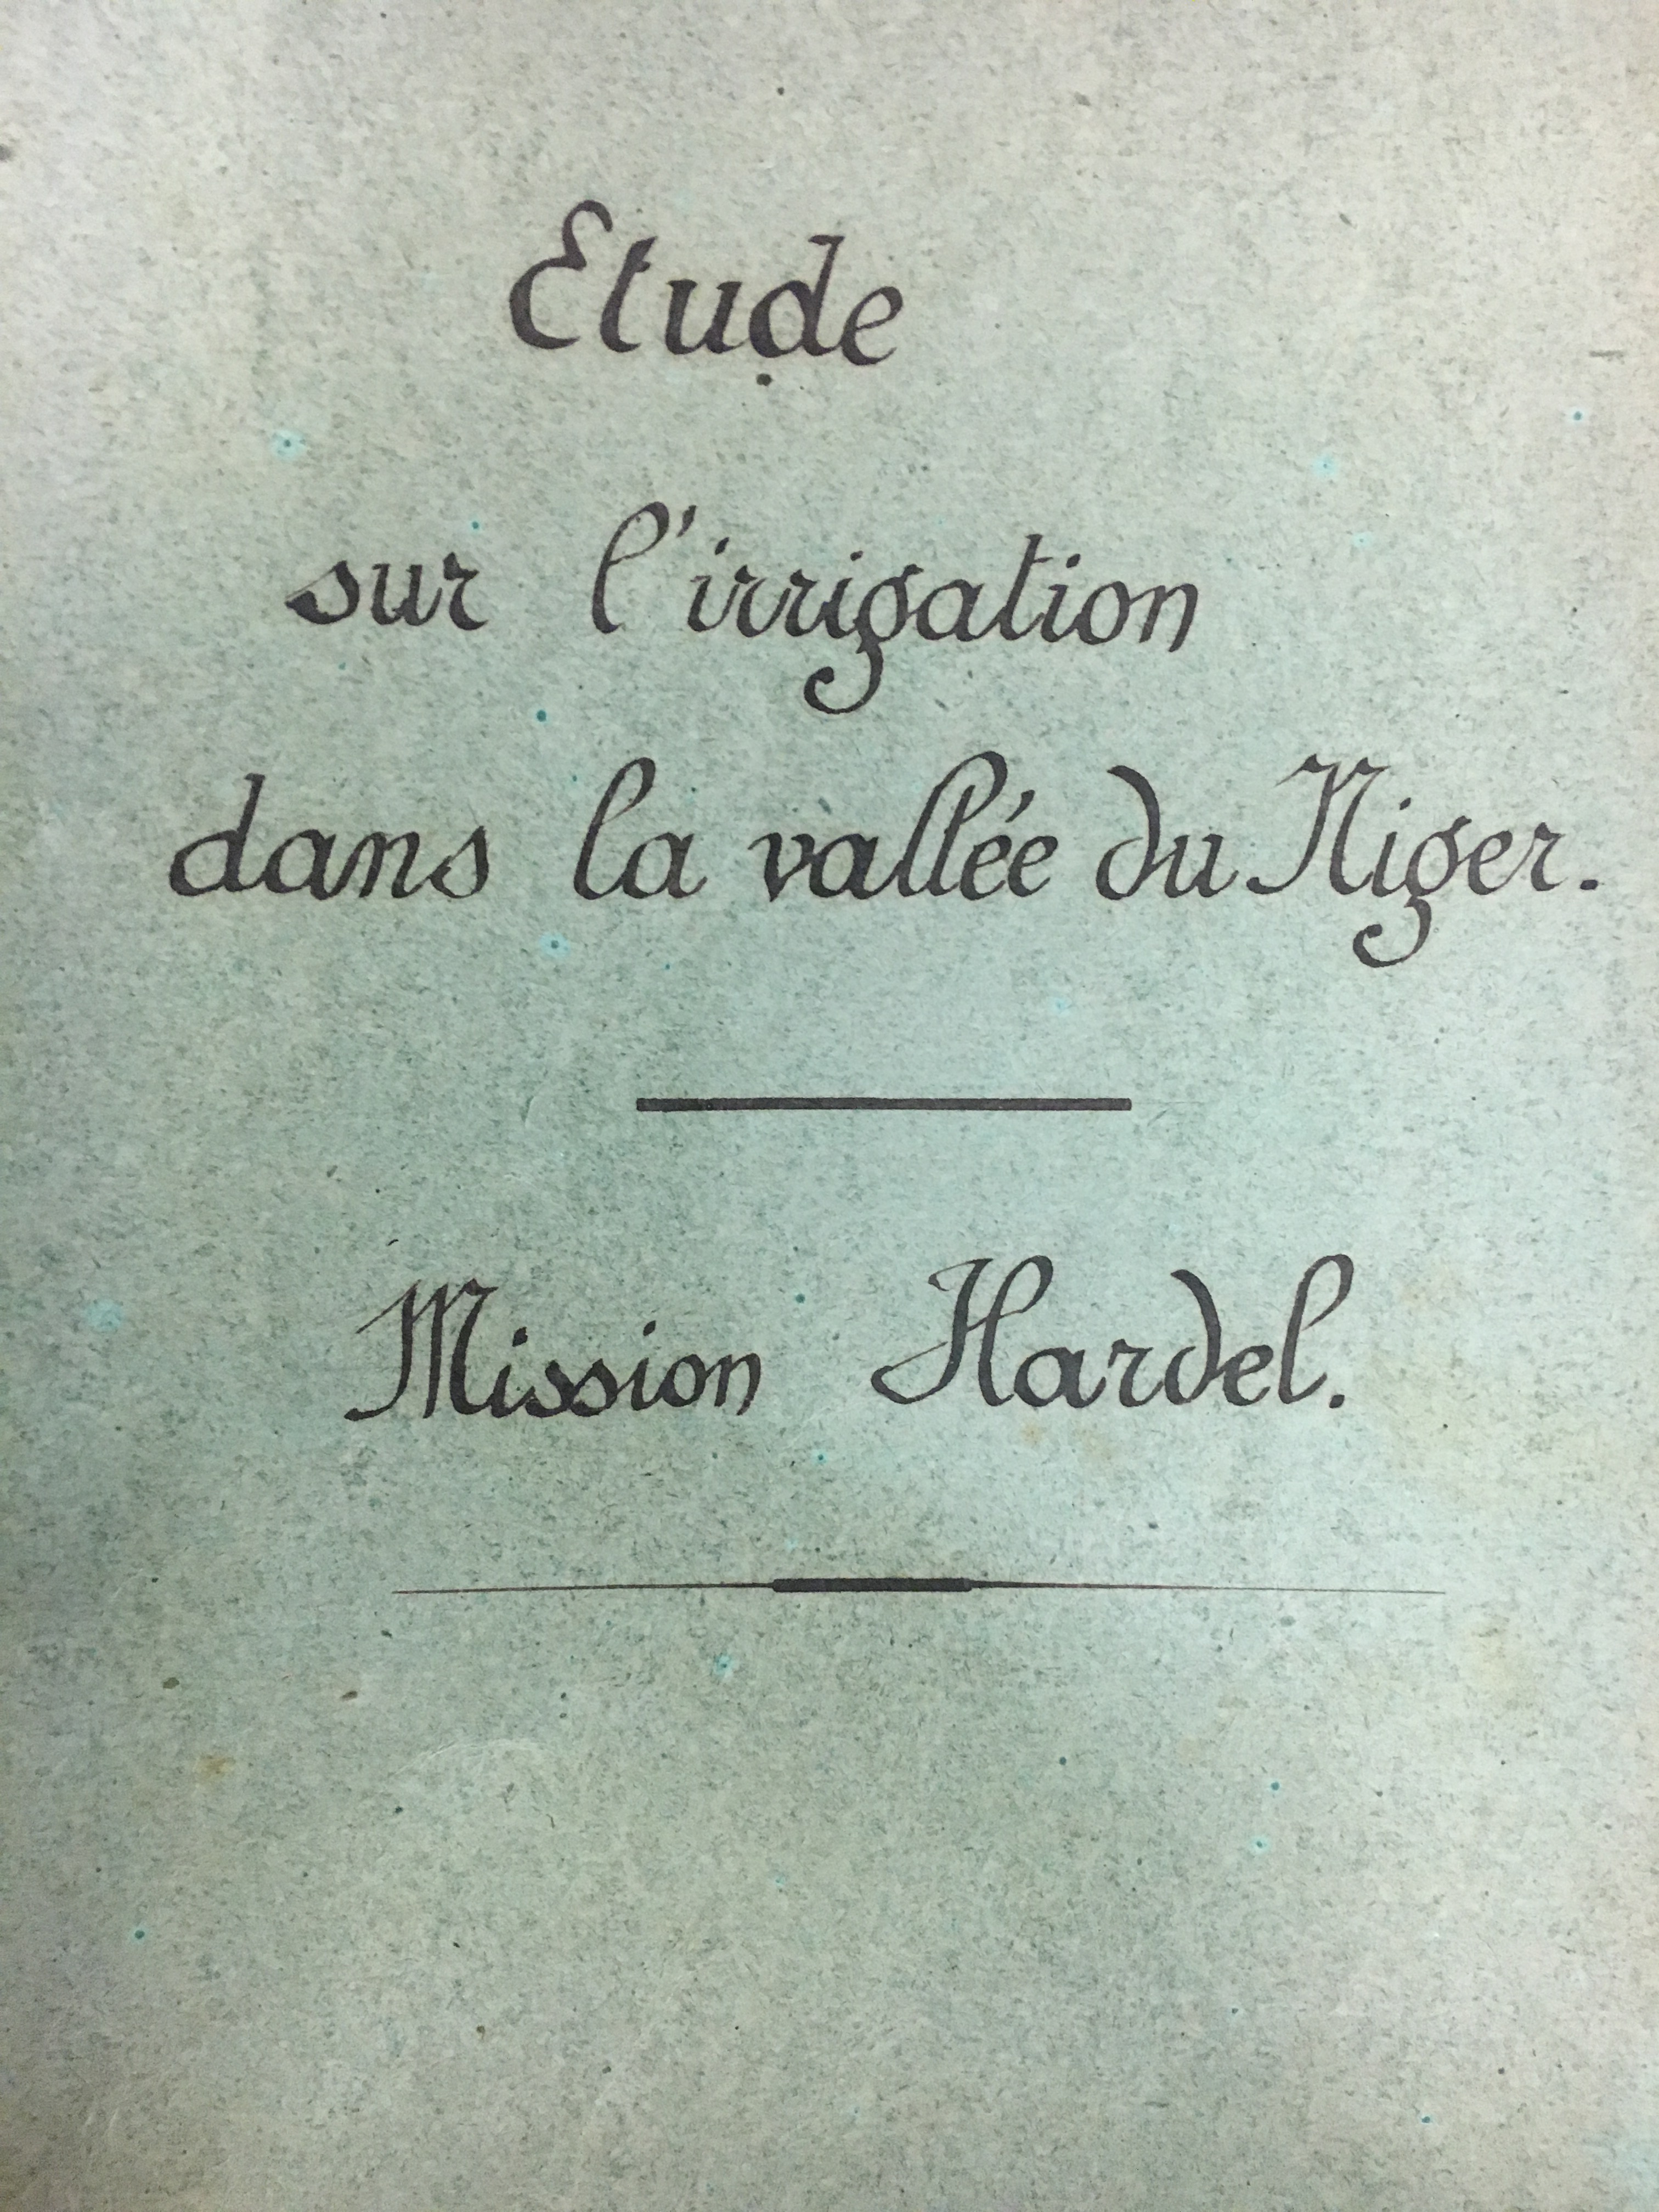 Etude
sur l'irrigation
dans la vallée du Niger.
Mission Hardel.